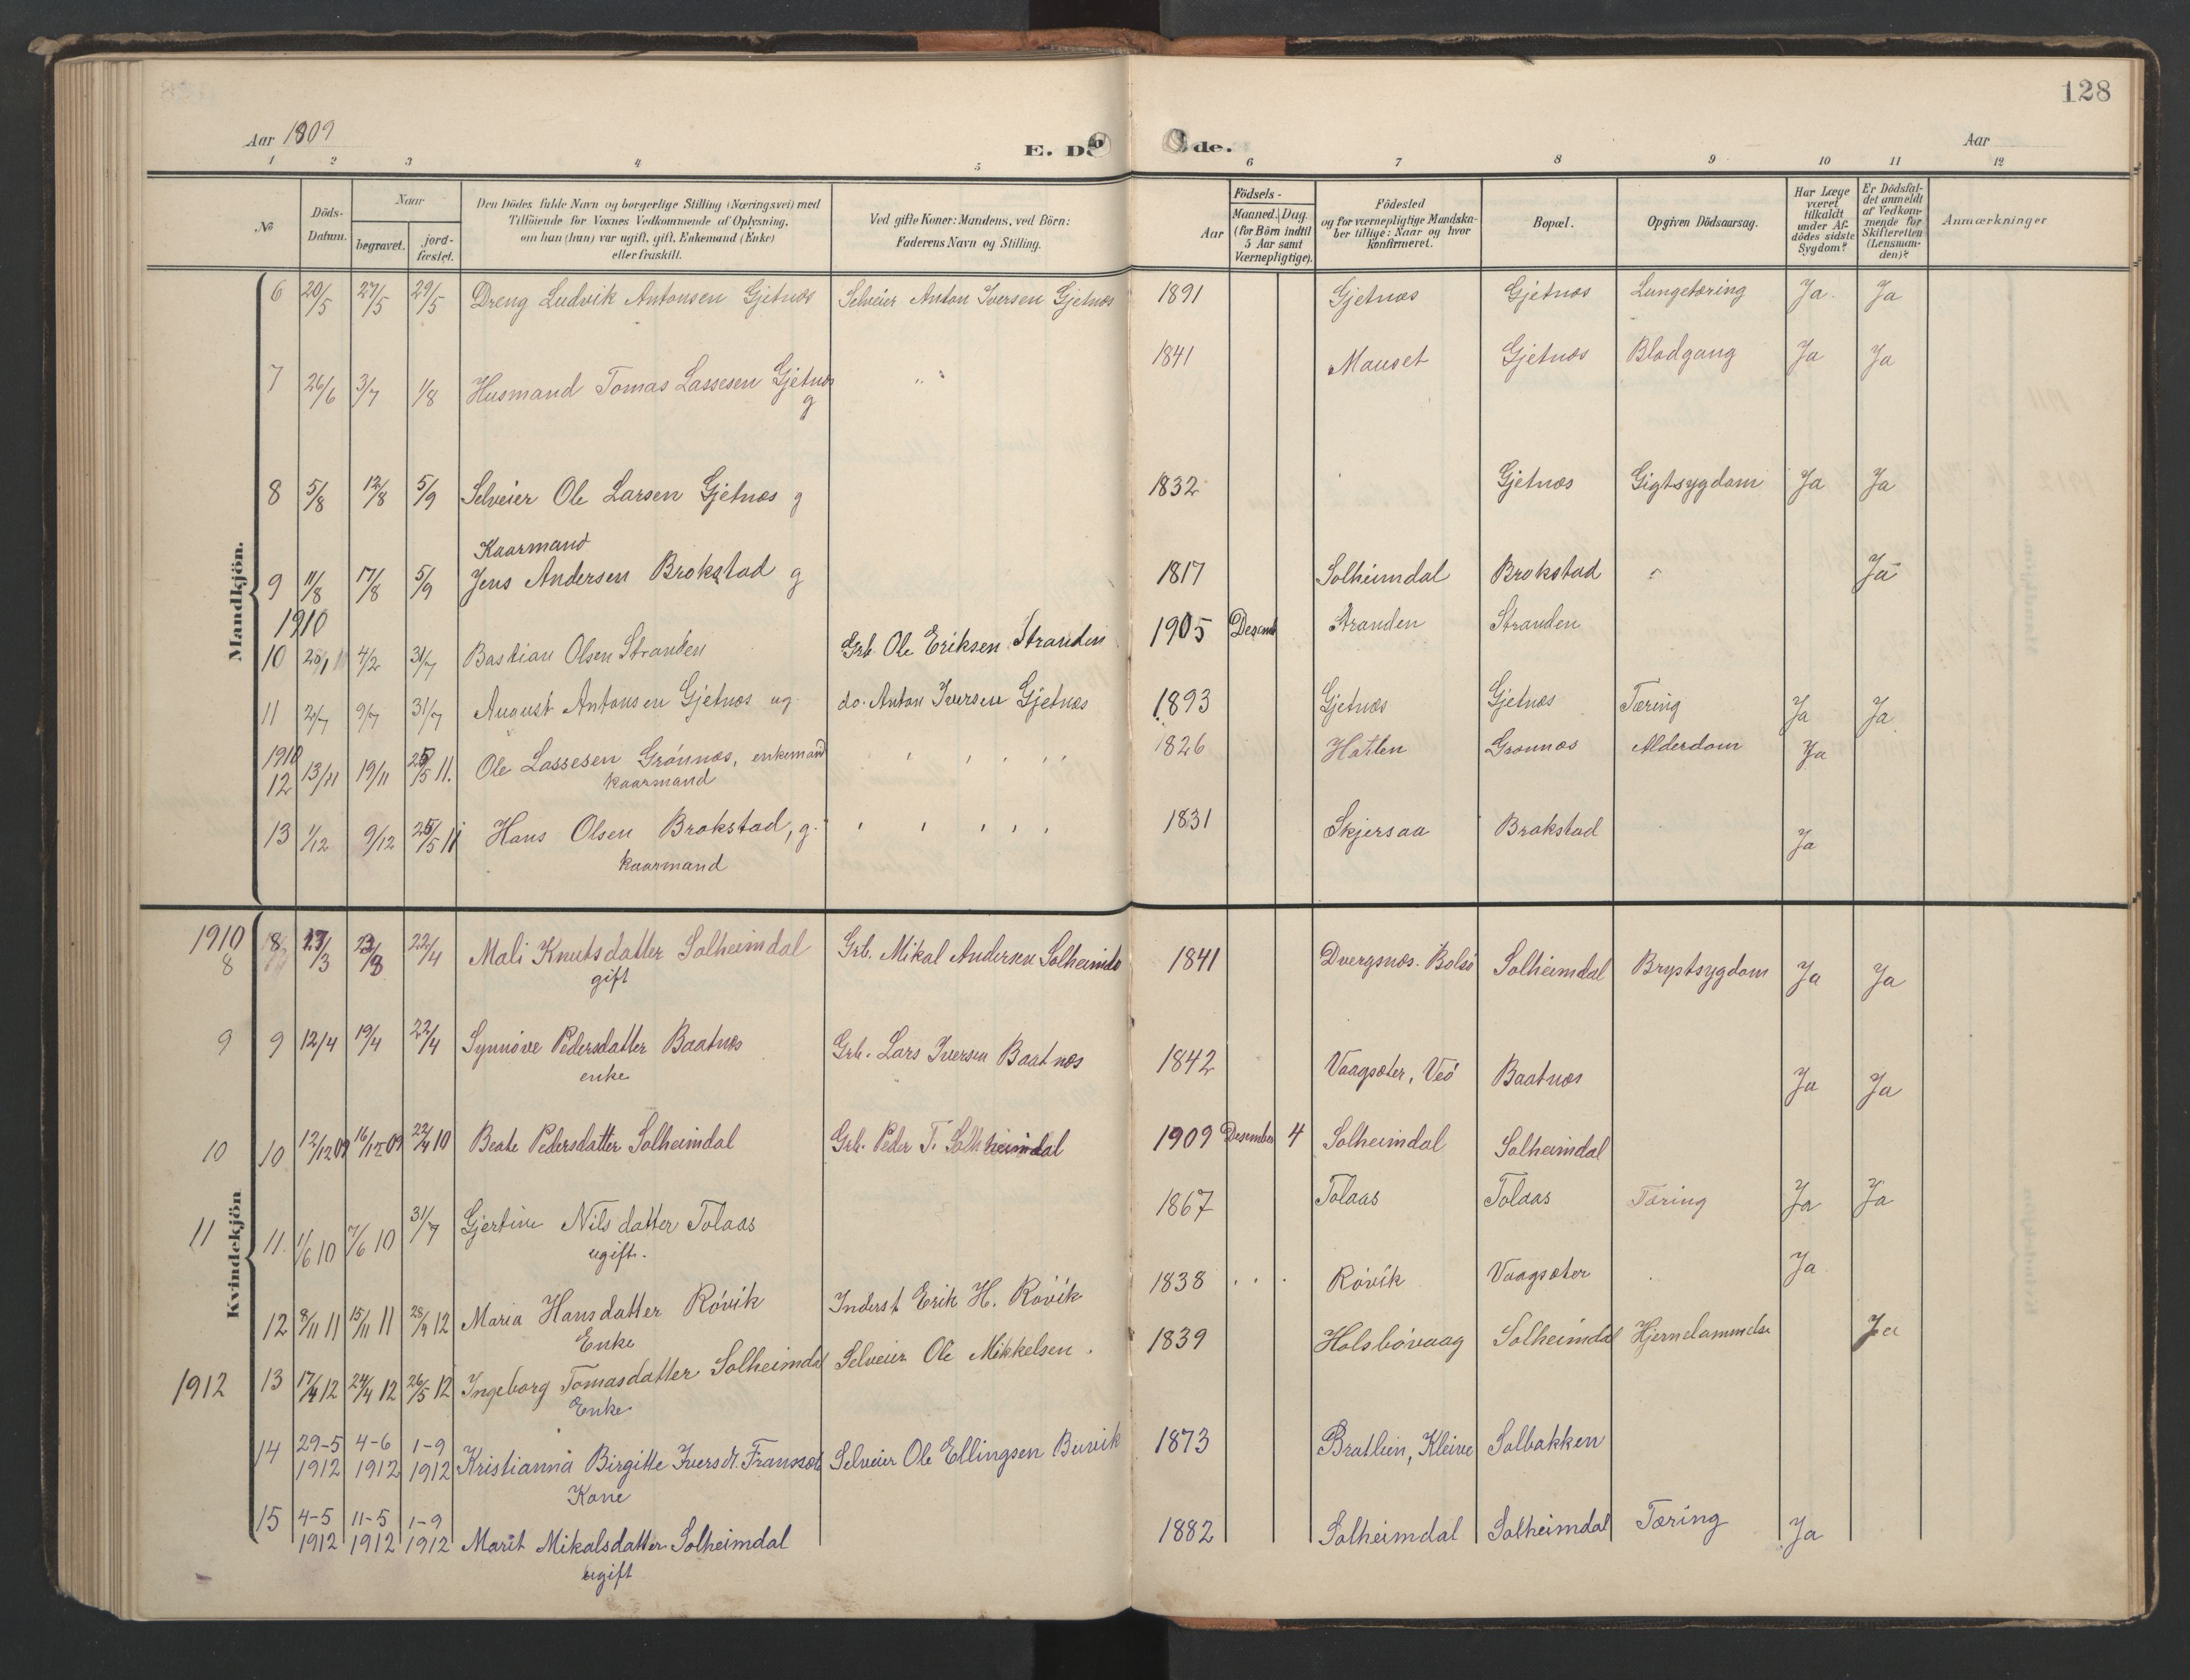 128
Aar 1809 E. Döde. Aar
1 2 3 4 5 6 7 8 9 10 11 12
№ Döds-Datum. Naar begravet. jord-fæstet. Den Dödes fulde Navn og borgerlige Stilling (Næringsvei) med Tilföiende for Voxnes Vedkommende af Oplysning, om han (hun) var ugift, gift, Enkemand (Enke) eller fraskilt. Ved gifte Koner: Mandens, ved Börn: Faderens Navn og Stilling. Födsels- Aar Maaned. Dag. (for Börn indtil 5 Aar samt Værnepligtige). Födested og for værnepligtige Mandskaber tillige: Naar og hvor konfirmeret. Bopæl. Opgiven Dödsaarsag. Har Læge været tilkaldt under Afdödes sidste Sygdom? Er Dödsfaldet anmeldt af Vedkommende for Skifteretten (Lensmanden)? Anmærkninger
Mandkjön.
6 20/5 27/5 29/5 Dreng Ludvik Antonsen Gjetnæs Selveier Anton Iversen Gjetnæs 1891 Gjetnæs Gjetnæs Lungetæring Ja. Ja
7 26/6 3/7 1/8 Husmand Tomas Lassesen Gjetnæs g " " 1841 Mauset Gjetnæs Blodgang Ja Ja
8 5/8 12/8 5/9 Selveier Ole Larsen Gjetnæs g 1832 Gjetnæs Gigtsygdom Ja Ja
Kaarmand
9 11/8 17/8 5/9 Jens Andersen Brokstad g 1817 Solheimdal Brokstad " Ja
1910
10 4/2 31/7 Bastian Olsen Stranden Grb. Ole Eriksen Stranden 1905 Desemb Stranden Stranden
11 2/7 9/7 31/7 August Antonsen Gjetnæs ug do. Anton Iversen Gjetnæs 1893 Gjetnæs Gjetnæs Tæring Ja Ja
1910
12 13/11 19/11 25/5 11. Ole Lassesen Grönnæs, enkemand 1826 Hatlen Grønnæs Alderdom Ja
kaarmand
13 1/12 9/12 25/5 11 Hans Olsen Brokstad, g. 1831 Skjersaa Brakstad Ja
kaarmand
Kvindekjön
1910
8 8 17/3 23/3 22/4 Mali Knutsdatter Solheimdal Grb. Mikal Andersen Solheimda 1841 Dvergsnæs. Bolsö Solheimdal Brystsygdom Ja Ja
gift
9 9 12/4 19/4 22/4 Synnöve Pedersdatter Baatnæs Grb. Lars Iversen Baatnæs 1842 Vaagsæter, Veö Baatnæs Ja Ja
enke
10 10 12/12 09 16/12 09 22/4 10 Beate Pedersdatter Solheimdal Grb. Peder T. Solheimdal 1909 Desember 4 Solheimdal Solheimdal
11 11. 1/6 10 7/6 10 31/7 Gjertine Nilsdatter Tolaas 1867 Tolaas Tolaas Tæring Ja Ja
ugift.
12 8/11 11 15/11 11 28/4 12 Maria Hansdatter Rövik Inderst Erik H. Rövik 1838 . . . Rövik Vaagsæter Ja
Enke
1912 13 17/4 12 24/4 12 26/5 12 Ingeborg Tomasdatter Solheimdal Selveier Ole Mikkelsen. 1839 Holsbövaag Solheimdal Hjernelammelse Ja
Enke
14 29-5 1912 4-6 1912 1-9 1912 Kristianna Birgitte Iversdt. Fransæt Selveier Ole Ellingsen Buvik 1873 Bratlien, Kleive Solbakken
Kone
15 4-5 1912 11-5 1912 1-9 1912 Marit Mikalsdatter Solheimdal 1882 Solheimdal Solheimdal Tæring Ja
ugift